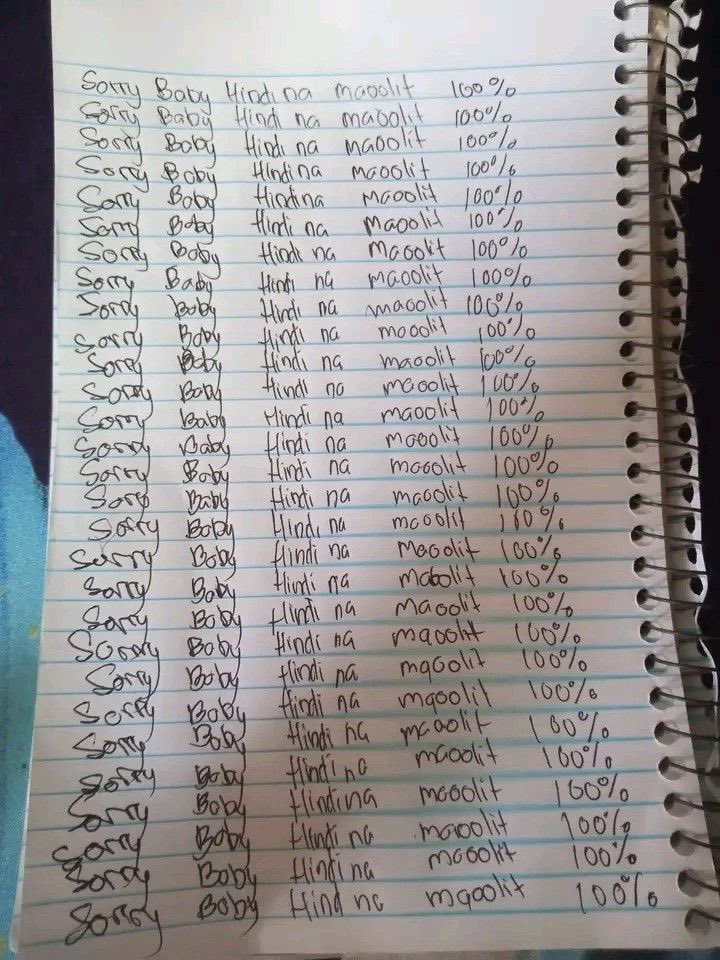 Sorry Baby Hindi na maoolit 100%
Sorry Baby Hindi na maoolit 100%
Sorry Baby Hindi na maoolit 100%
Sorry Baby Hindi na maoolit 100%
Sorry Baby Hindi na maoolit 100%
Sorry Baby Hindi na maoolit 100%
Sorry Baby Hindi na maoolit 100%
Sorry Baby Hindi na maoolit 100%
Sorry Baby Hindi na maoolit 100%
Sorry Baby Hindi na maoolit 100%
Sorry Baby Hindi na maoolit 100%
Sorry Baby Hindi na maoolit 100%
Sorry Baby Hindi na maoolit 100%
Sorry Baby Hindi na maoolit 100%
Sorry Baby Hindi na maoolit 100%
Sorry Baby Hindi na maoolit 100%
Sorry Baby Hindi na maoolit 100%
Sorry Baby Hindi na maoolit 100%
Sorry Baby Hindi na maoolit 100%
Sorry Baby Hindi na maoolit 100%
Sorry Baby Hindi na maoolit 100%
Sorry Baby Hindi na maoolit 100%
Sorry Baby Hindi na maoolit 100%
Sorry Baby Hindi na maoolit 100%
Sorry Baby Hindi na maoolit 100%
Sorry Baby Hindi na maoolit 100%
Sorry Baby Hindi na maoolit 100%
Sorry Baby Hindi na maoolit 100%
Sorry Baby Hind na maoolit 100%